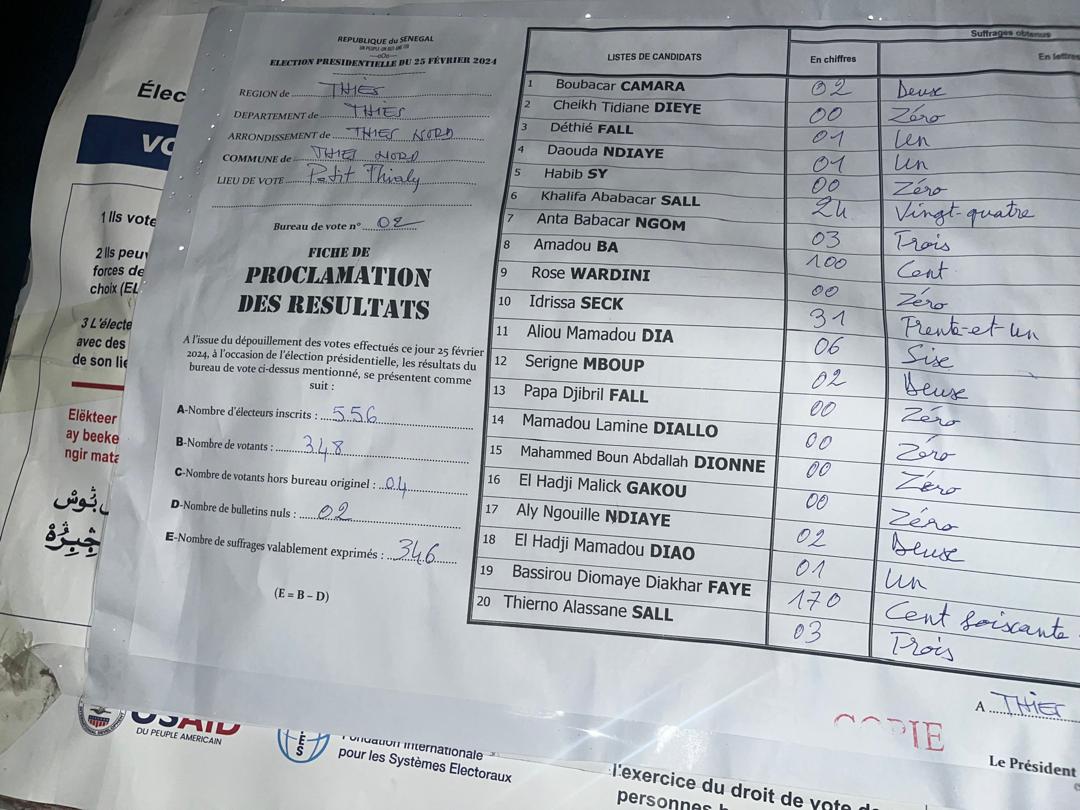 REPUBLIQUE du SENEGAL
UN PEUPLE-UN BUT-UNE FOI
---oOo---
ELECTION PRESIDENTIELLE DU 25 FÉVRIER 2024
REGION de THIES
DEPARTEMENT de THIES
ARRONDISSEMENT de THIES NORD
COMMUNE de THIES NORD
LIEU DE VOTE Petit Thialy
Bureau de vote n° 02
FICHE DE
PROCLAMATION
DES RESULTATS
A l'issue du dépouillement des votes effectués ce jour 25 février
2024, à l'occasion de l'élection présidentielle, les résultats du
bureau de vote ci-dessus mentionné, se présentent comme
suit :
A-Nombre d'électeurs inscrits : 556
B-Nombre de votants : 348
C-Nombre de votants hors bureau originel : 04
D-Nombre de bulletins nuls : 02
E-Nombre de suffrages valablement exprimés : 346
(E = B – D)
LISTES DE CANDIDATS
Suffrages obtenus
En chiffres
En lettres
1 Boubacar CAMARA 02 Deux
2 Cheikh Tidiane DIEYE 00 Zéro
3 Déthié FALL 01 Un
4 Daouda NDIAYE 01 Un
5 Habib SY 00 Zéro
6 Khalifa Ababacar SALL 24 Vingt-quatre
7 Anta Babacar NGOM 03 Trois
8 Amadou BA 100 Cent
9 Rose WARDINI 00 Zéro
10 Idrissa SECK 31 Trente-et-un
11 Aliou Mamadou DIA 06 Six
12 Serigne MBOUP 02 Deux
13 Papa Djibril FALL 00 Zéro
14 Mamadou Lamine DIALLO 00 Zéro
15 Mahammed Boun Abdallah DIONNE 00 Zéro
16 El Hadji Malick GAKOU 00 Zéro
17 Aly Ngouille NDIAYE 02 Deux
18 El Hadji Mamadou DIAO 01 Un
19 Bassirou Diomaye Diakhar FAYE 170 Cent soixante
20 Thierno Alassane SALL 03 Trois
A THIES
COPIE
Le Président
Élec
VO
1 Ils vote
2 Ils peuv
forces de
choix (EL
3 L'électe
avec des
de son lie
Elëkteer
ay beeke
ngir mata
USAID
DU PEUPLE AMERICAIN
Fondation Internationale
pour les Systèmes Electoraux
l'exercice du droit de vote de
personnes